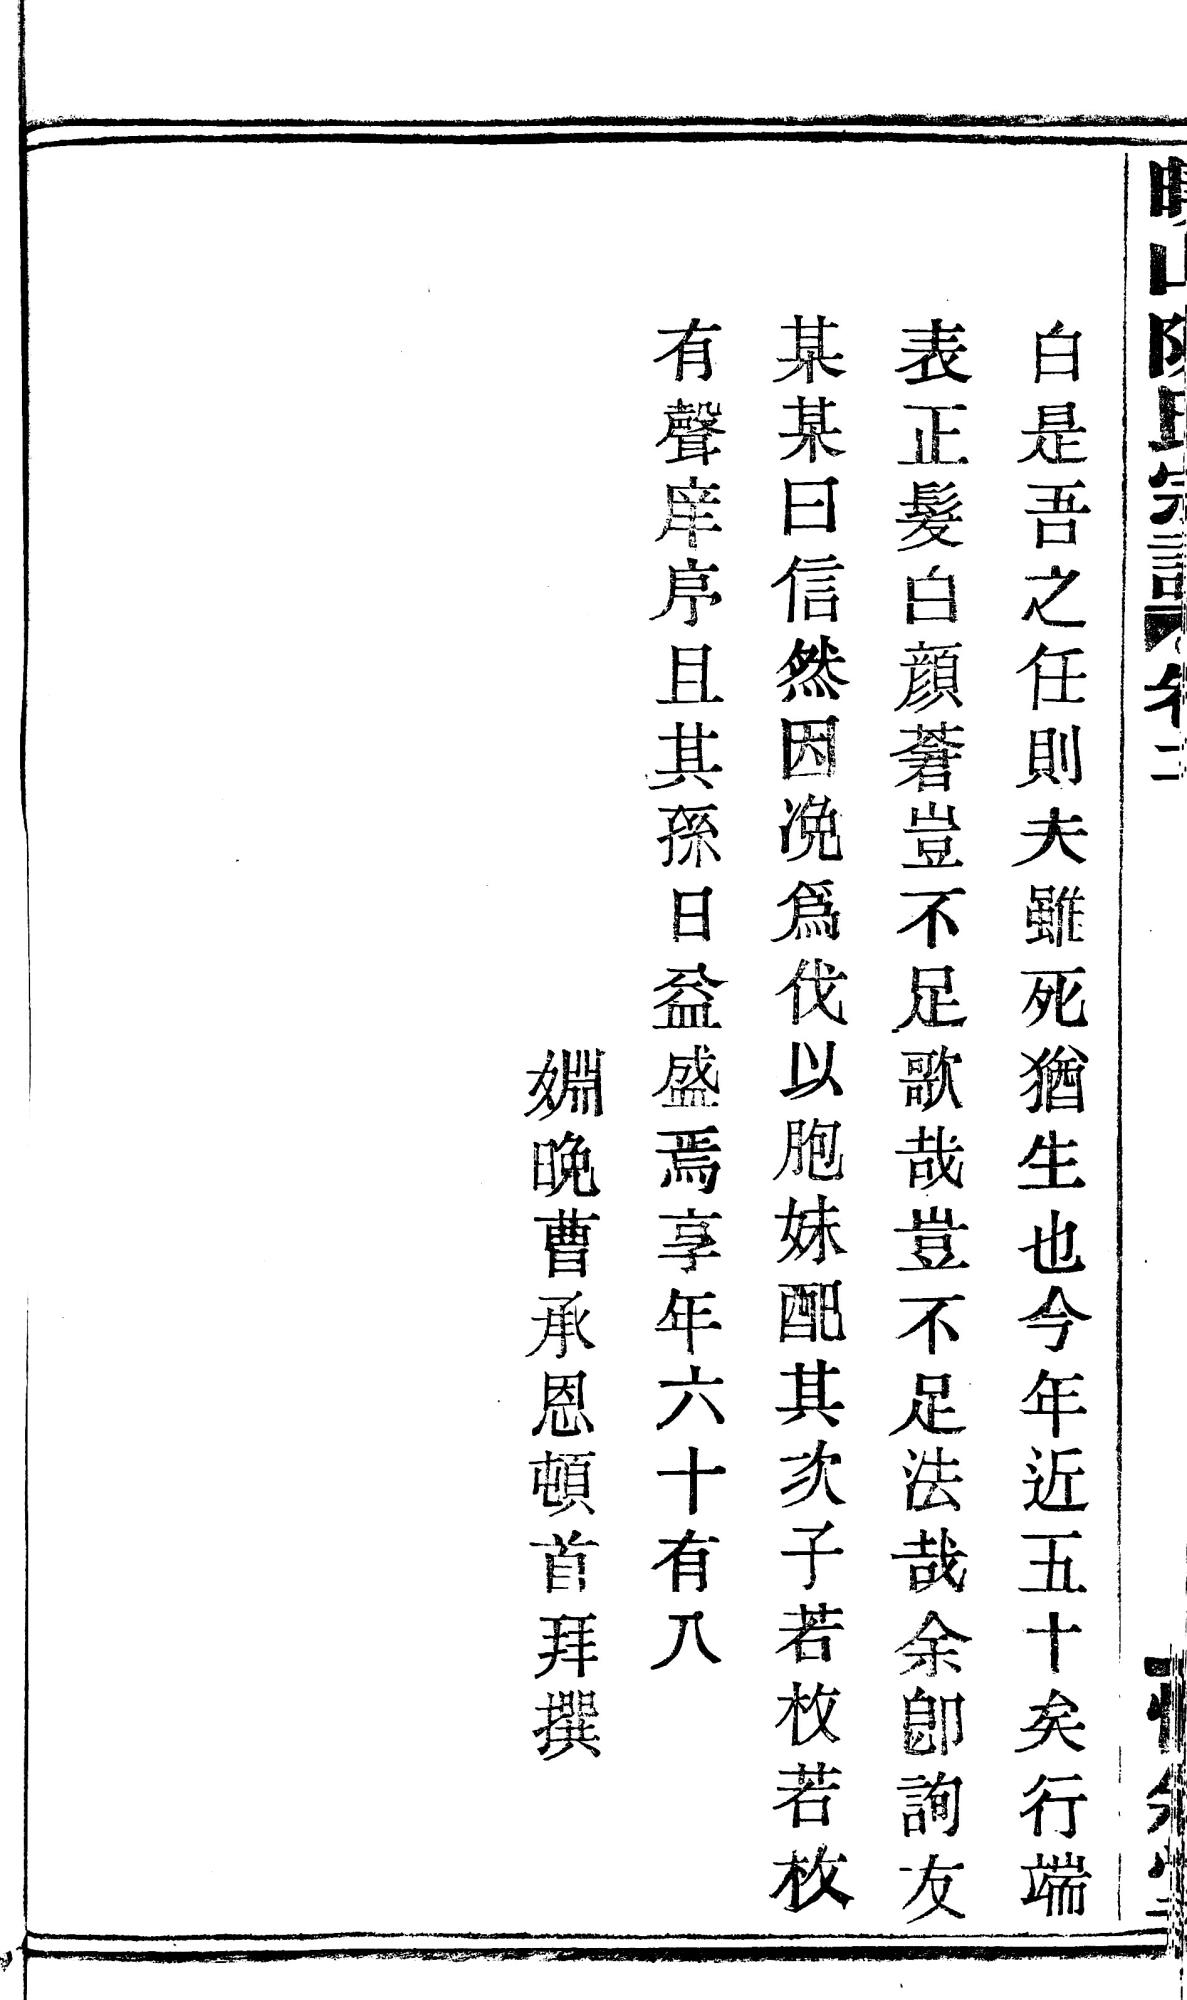 白是吾之任則夫雖死猶生也今年近五十矣行端
表正髮白顔蒼豈不足歌哉豈不足法哉余卽詢友
某某曰信然因浼爲伐以胞妹配其次子若枚若枚
有聲庠序且其孫日益盛焉享年六十有八
姻晩曹承恩頓首拜撰
山陳氏宗譜 卷二